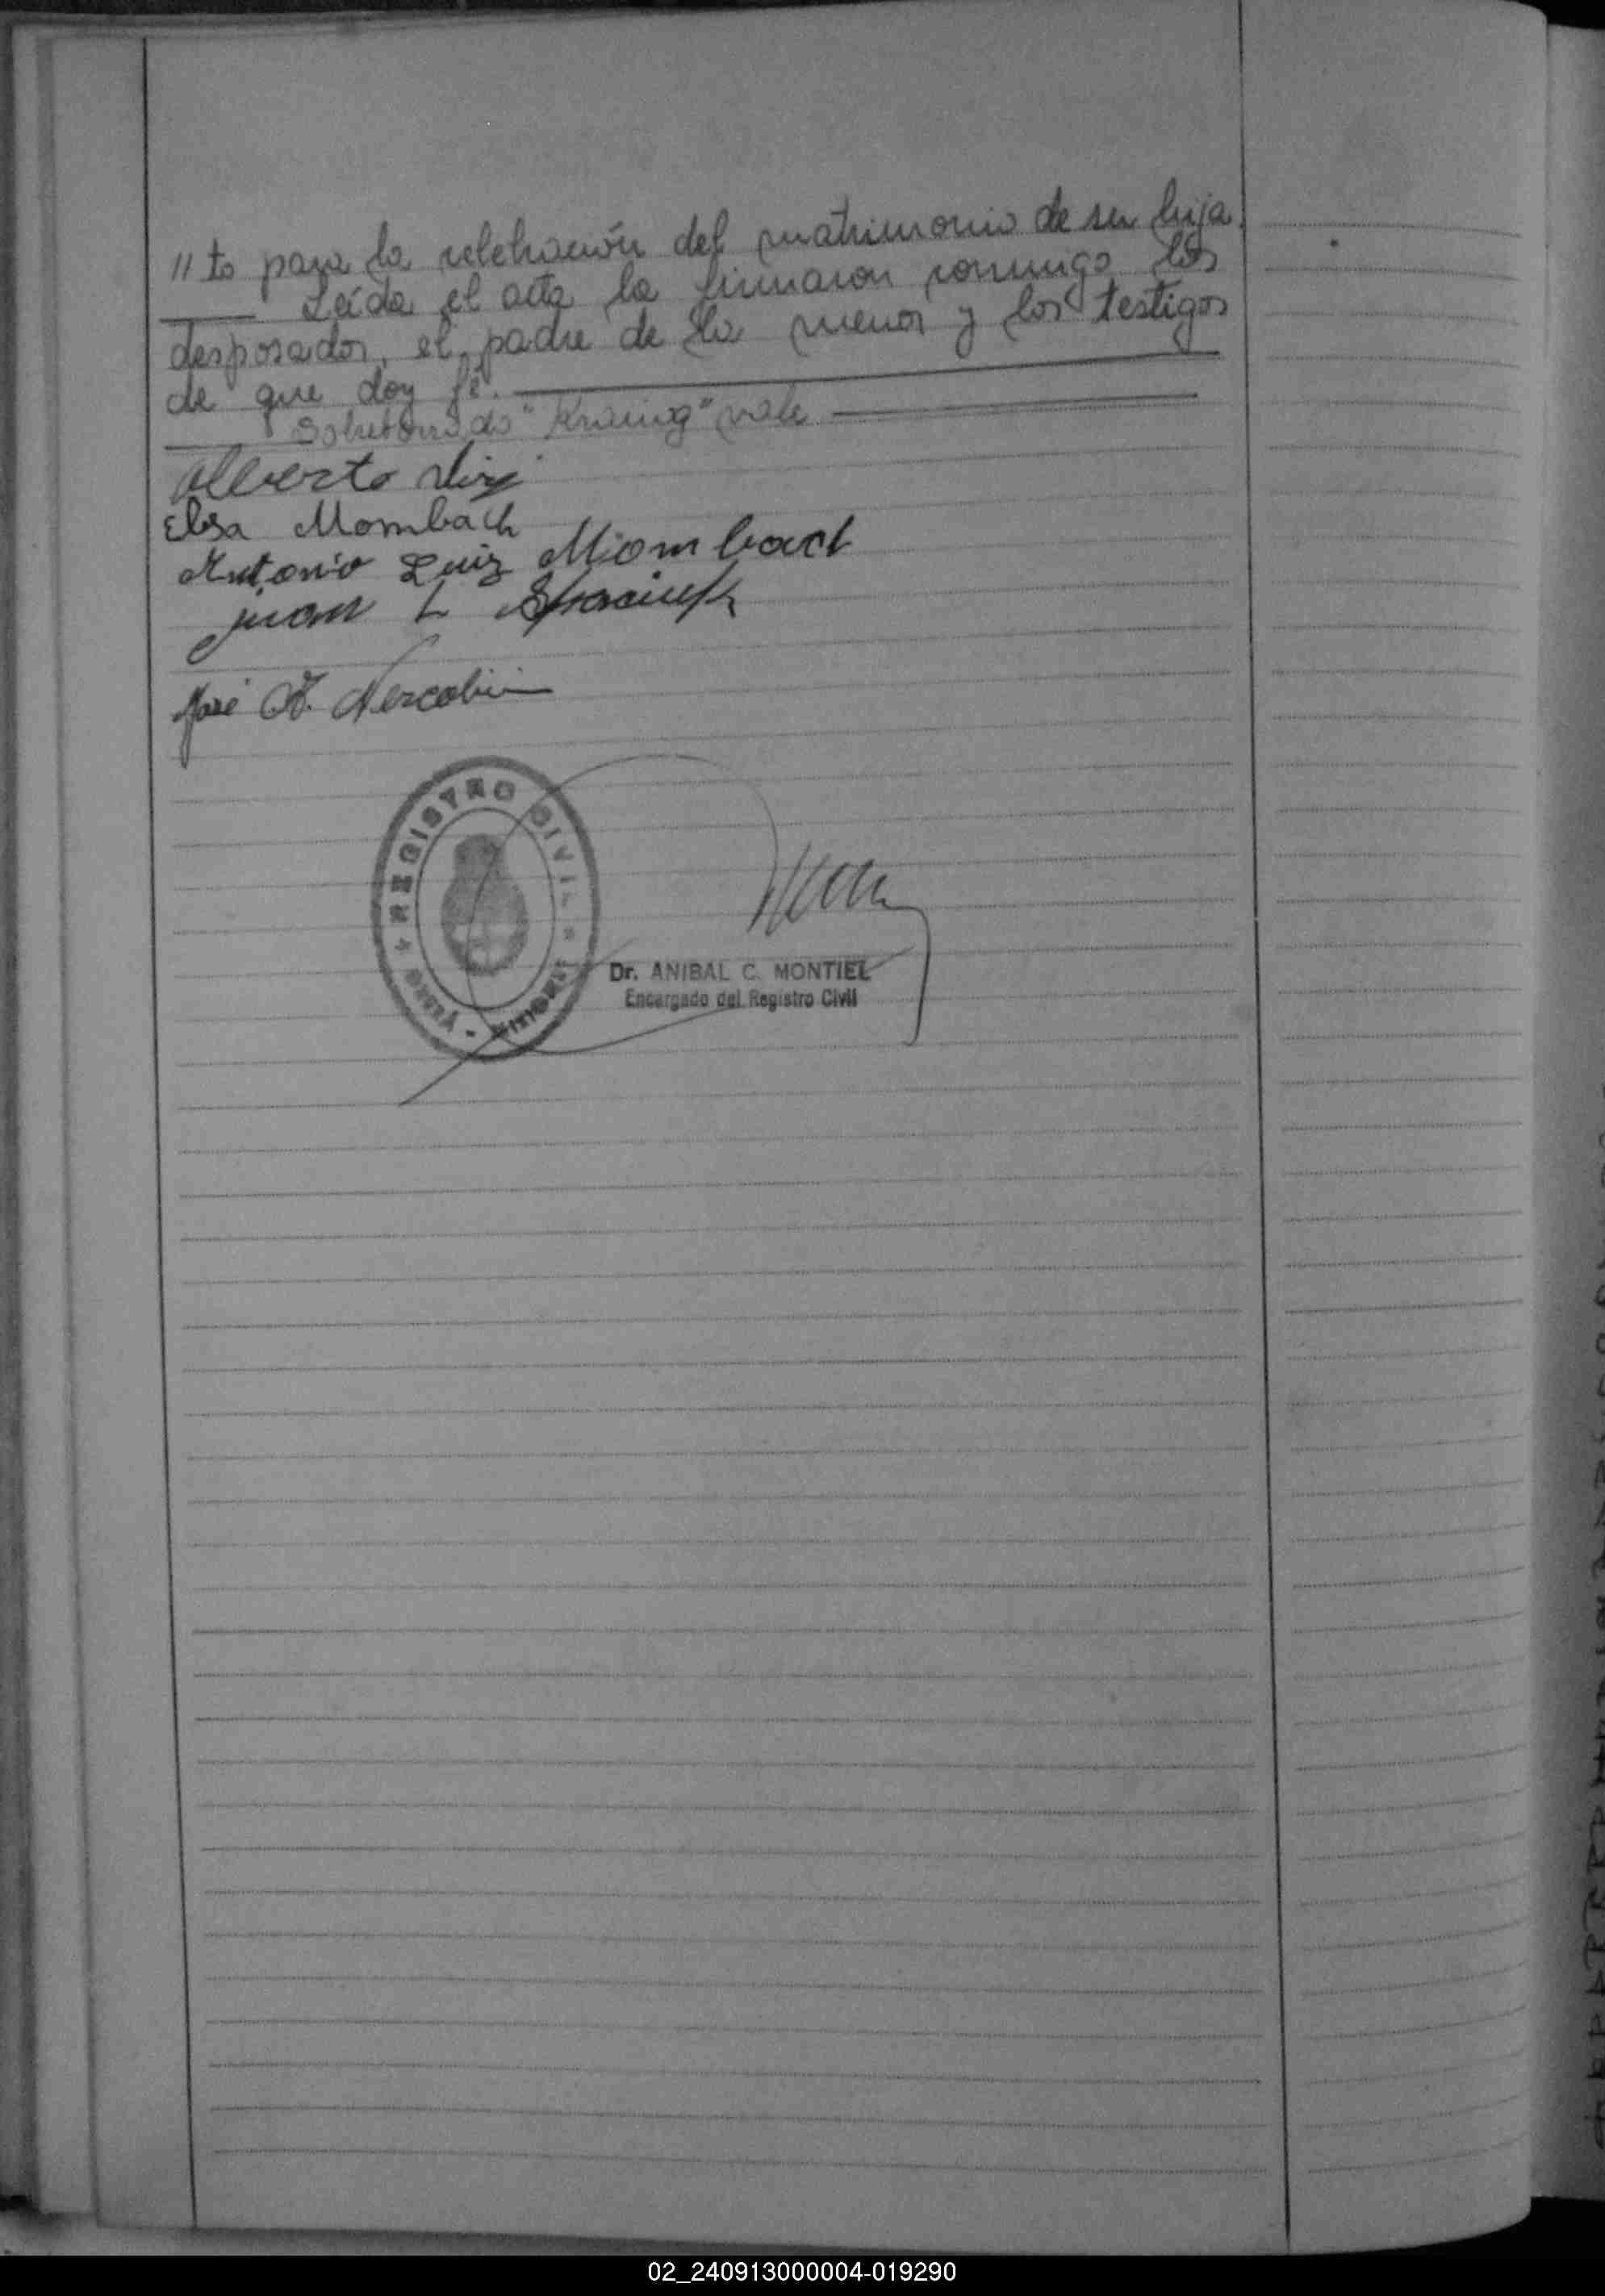 // to para la celebración del matrimonio de su hija.
Leída el acta la firmaron conmigo los
desposados, el padre de la menor y los testigos
de que doy fé.
Sobreborrado " " vale
Alberto
Elsa Mombach
Antonio Luiz Mombach
Juan L
José A.
REGISTRO CIVIL
MISIONES
Dr. ANIBAL C. MONTIEL
Encargado del Registro Civil
02_240913000004-019290